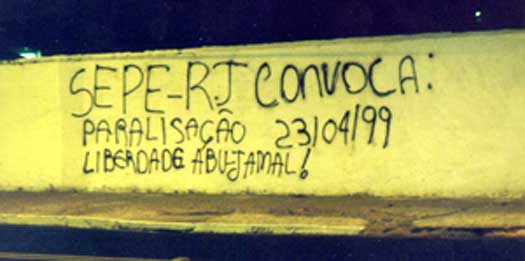 SEPE-RJ CONVOCA:
PARALISAÇÃO 23/04/99
LIBERDADE ABU-JAMAL!